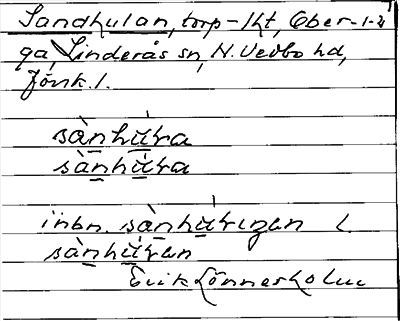 Sandkulan, torp-lht, Ober-
ga, Linderås sn, N. Vedbo hd,
Jönk. l.
sànhúra
sànhúra
inbn. sànhúringan l.
sànhúran
Erik Lönneskolm